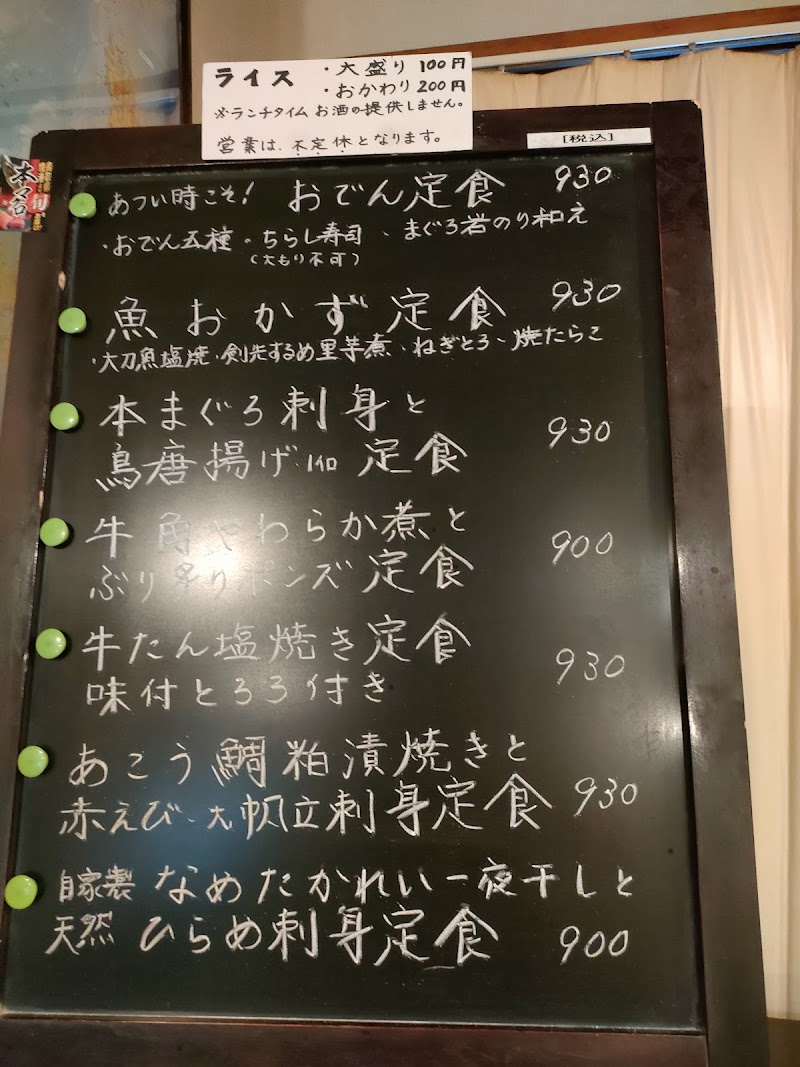 ライス ・大盛り 100円
・おかわり 200円
※ランチタイム お酒の提供しません。
営業は、不定休となります。
[税込]
あつい時こそ! おでん定食 930
・おでん五種・ちらし寿司・まぐろ岩のり和え
(大もり不可)
魚おかず定食 930
・大刀魚塩焼・剣先するめ里芋煮・ねぎとろ・焼たらこ
本まぐろ刺身と
鳥唐揚げ 定食 930
牛角やわらか煮と
ぶり ポンズ定食 900
牛たん塩焼き定食
味付とろろ付き 930
あこう鯛粕漬焼きと
赤えび・大帆立刺身定食 930
自家製 なめたかれい一夜干しと
天然 ひらめ刺身定食 900